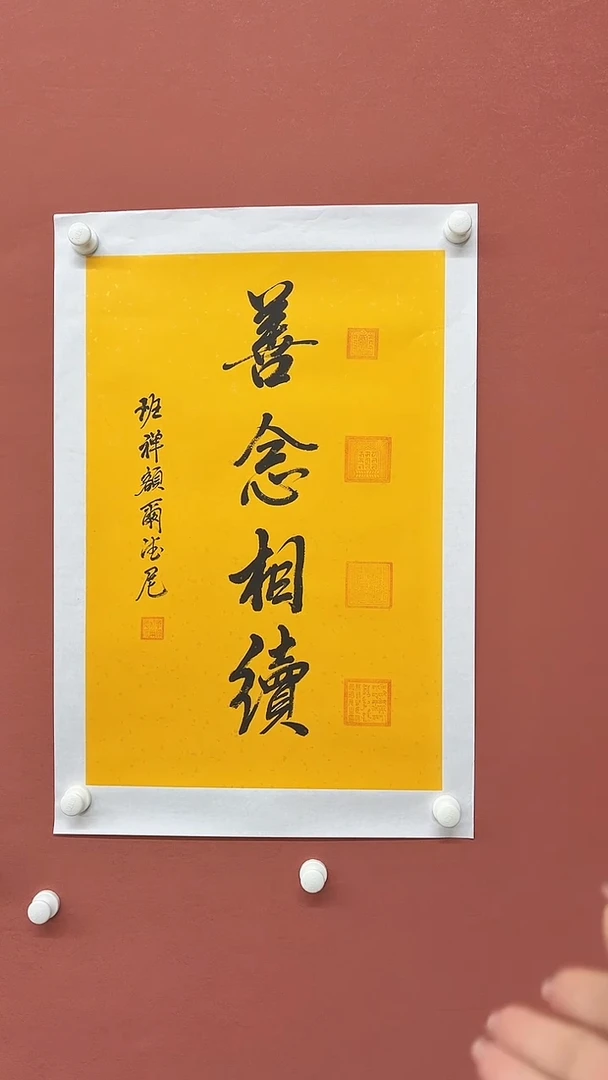 善念相續
班禅額爾德尼